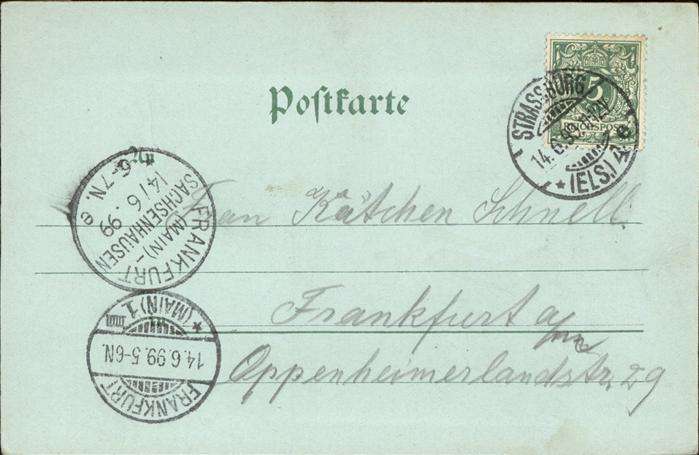 Postkarte
5
REICHSPOST
STRASSBURG
14.6.99.
* (ELS.) 4 e
An
Frau Kätchen Schnell
Frankfurt a/m
Oppenheimerlandstr. 29
FRANKFURT
(MAIN)-
SACHSENHAUSEN
14/6.99
6-7N.
e
* (MAIN) 1
14.6.99.5-6N.
FRANKFURT